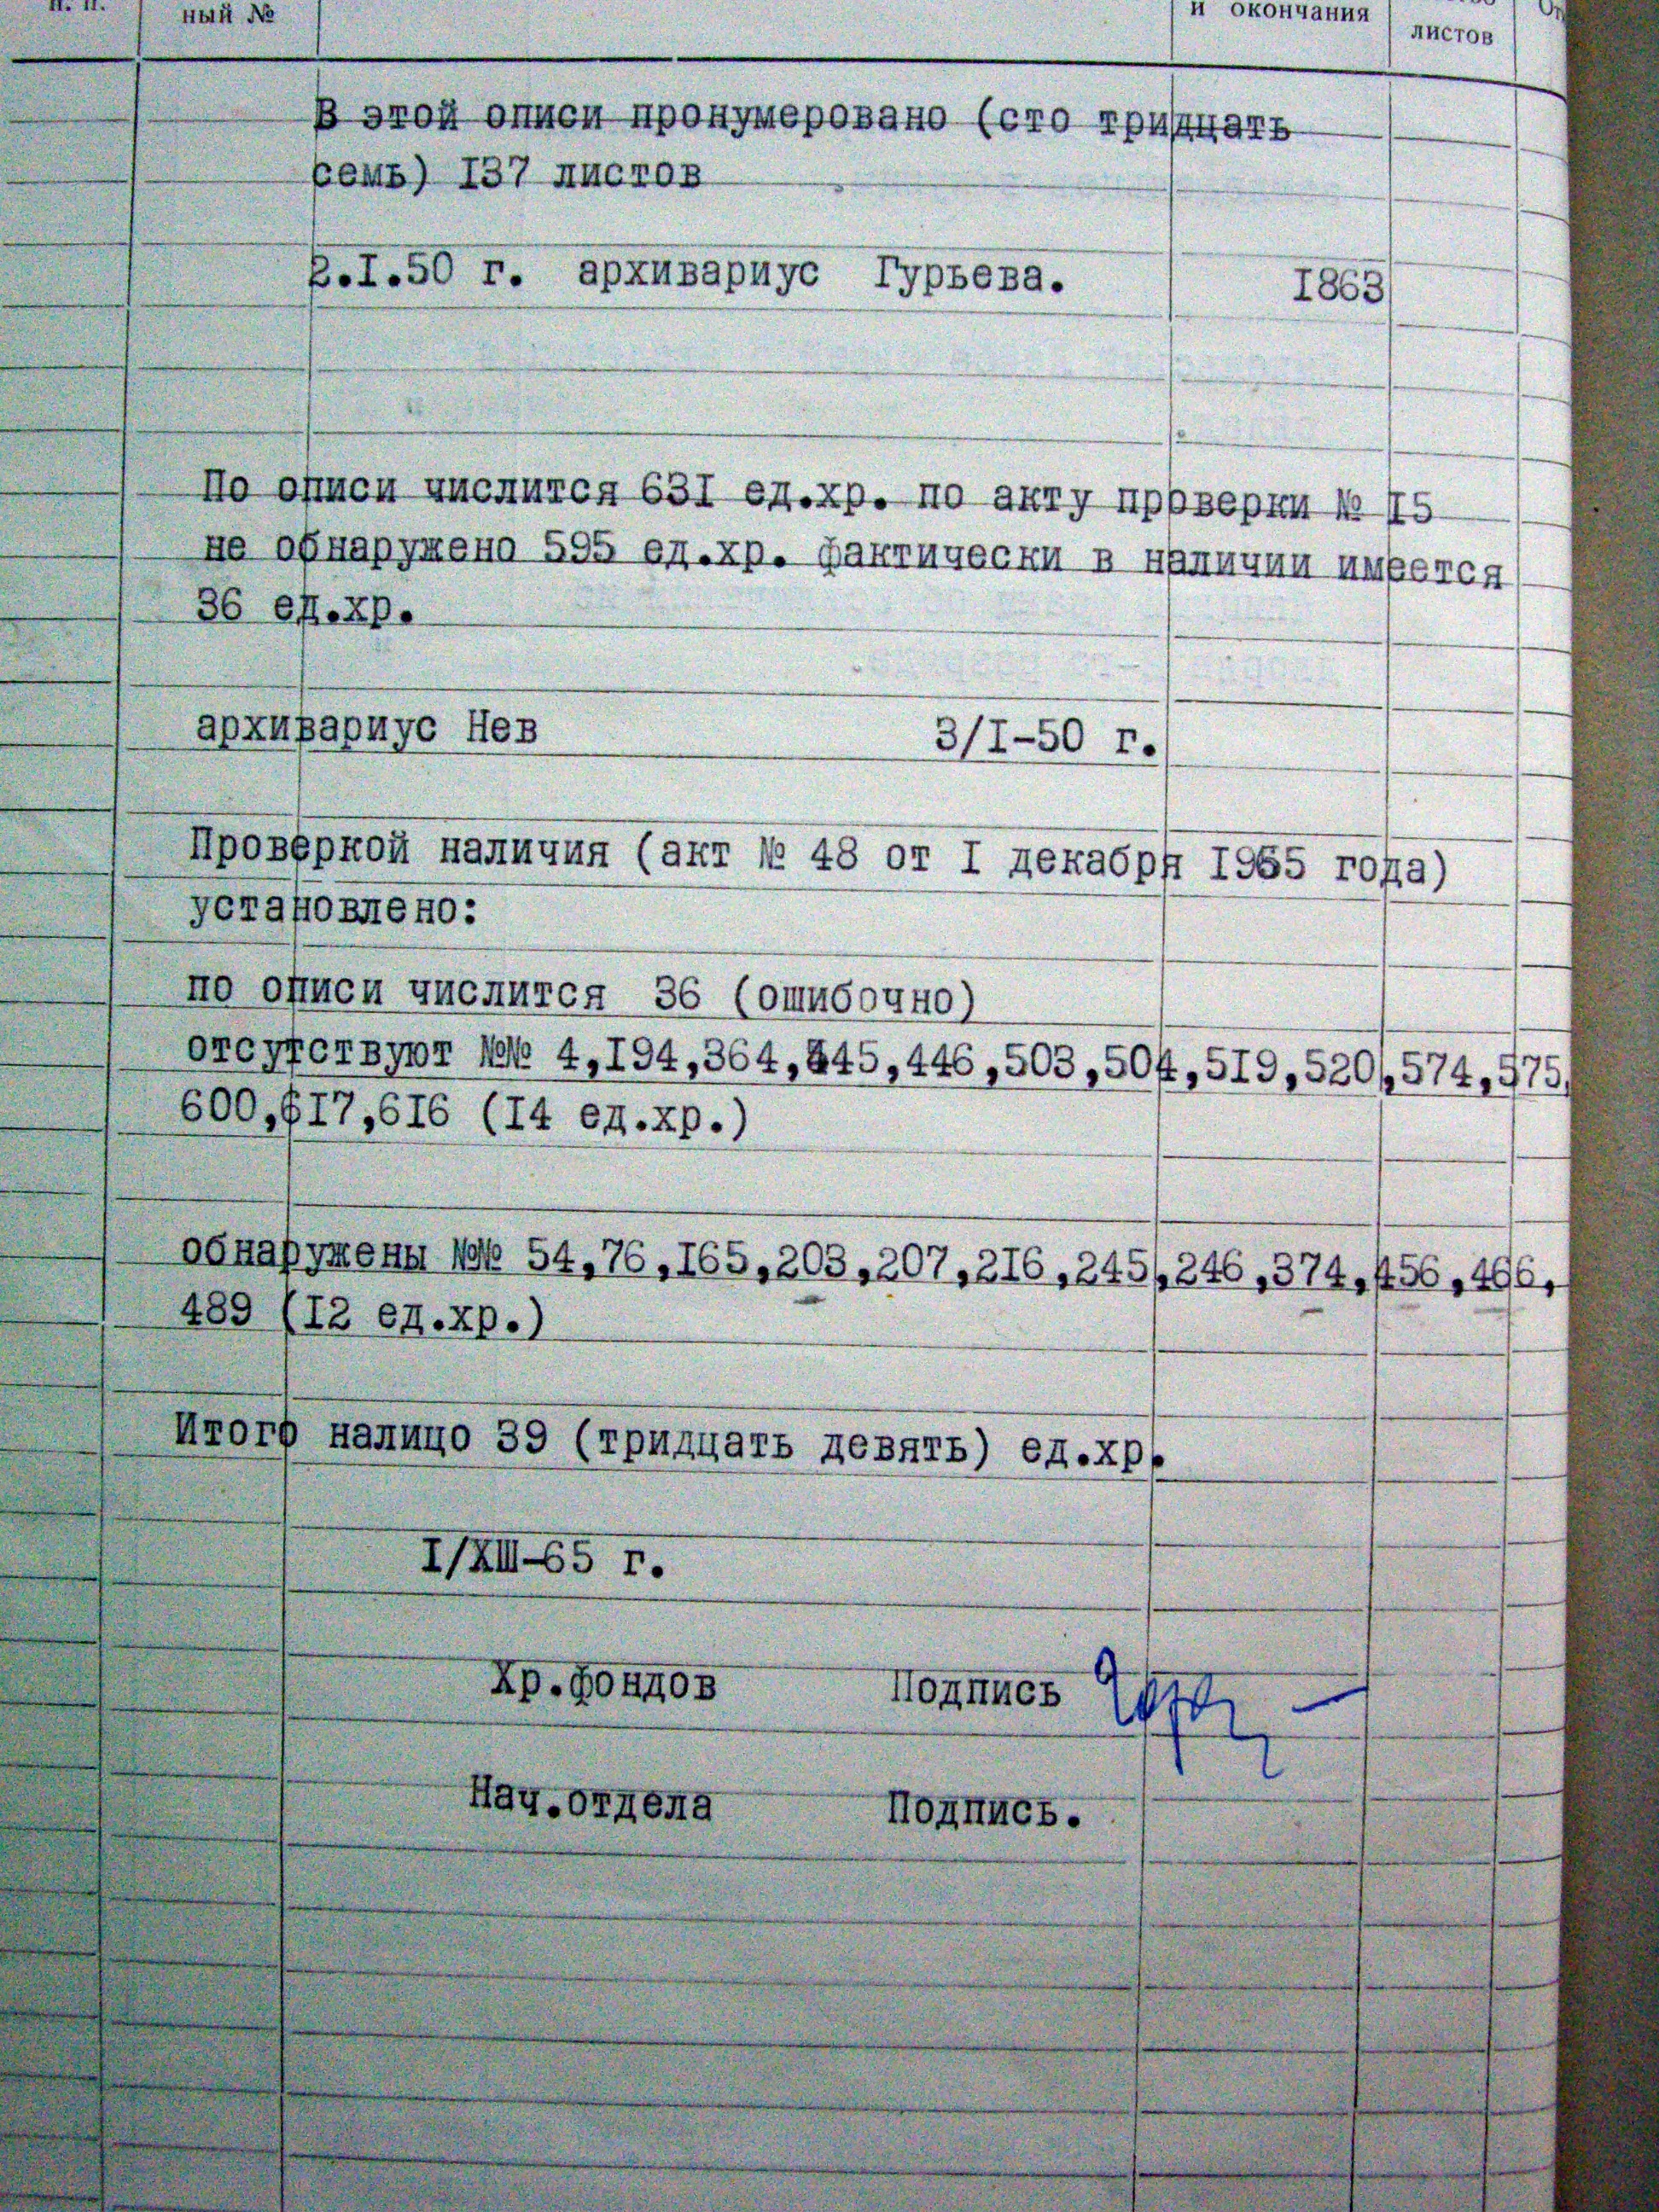 п. п. ный № и окончания листов
В этой описи пронумеровано (сто тридцать
семь) I37 листов
2.I.50 г. архивариус Гурьева. I863
По описи числится 63I ед.хр. по акту проверки № I5
не обнаружено 595 ед.хр. фактически в наличии имеется
36 ед.хр.
архивариус Нев 3/I-50 г.
Проверкой наличия (акт № 48 от I декабря I965 года)
установлено:
по описи числится 36 (ошибочно)
отсутствуют №№ 4,I94,364,445,446,503,504,5I9,520,574,575,
600,6I7,6I6 (I4 ед.хр.)
обнаружены №№ 54,76,I65,203,207,2I6,245,246,374,456,466,
489 (I2 ед.хр.)
Итого налицо 39 (тридцать девять) ед.хр.
I/XII-65 г.
Хр.фондов Подпись
Нач.отдела Подпись.